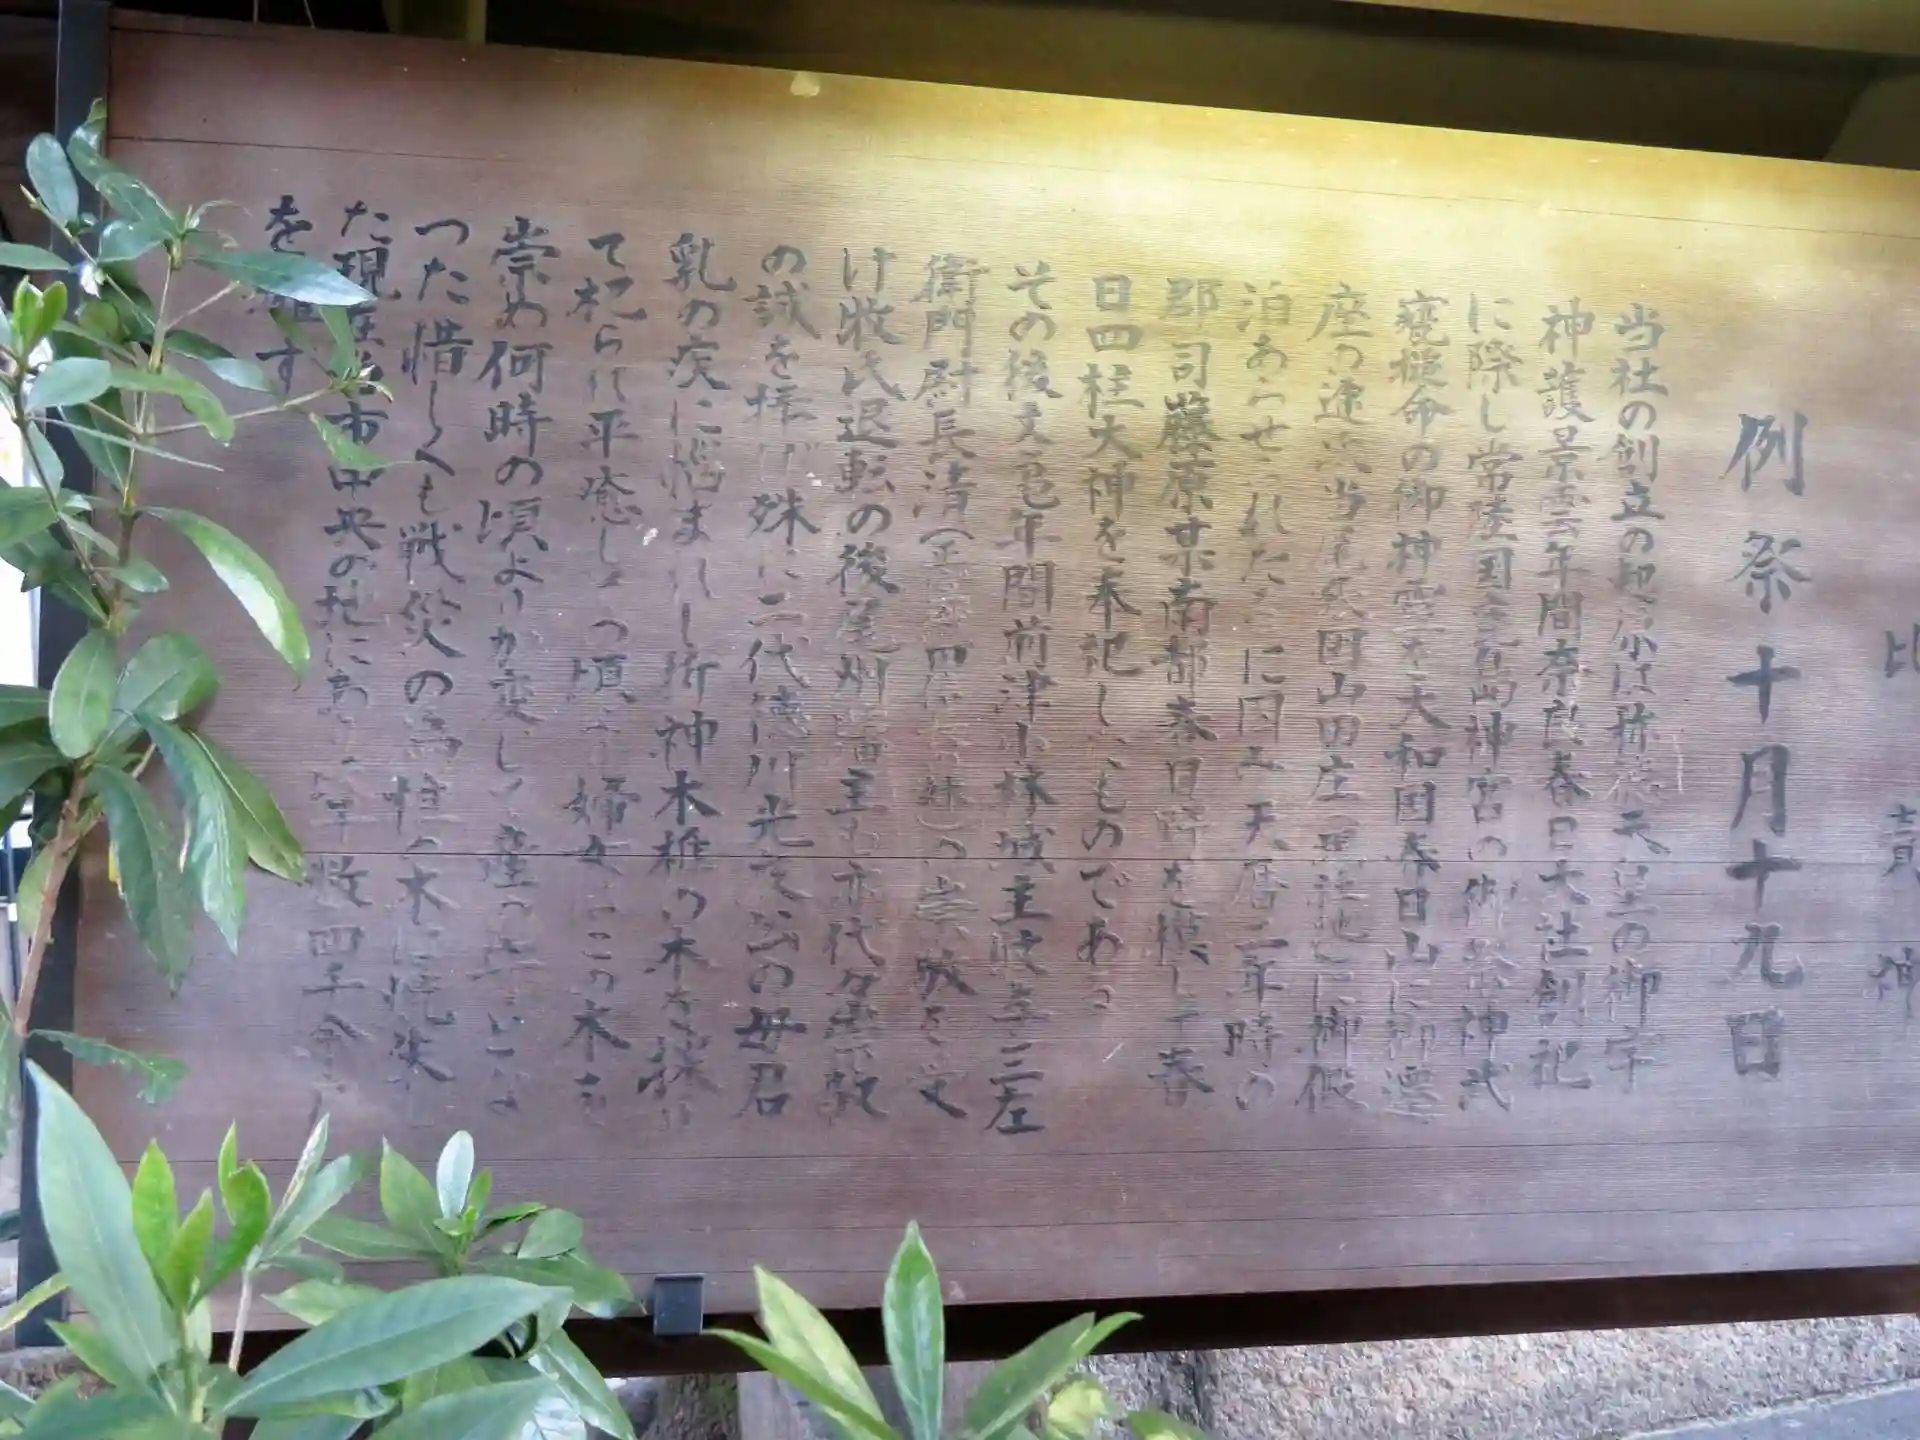 比賣神
例祭十月十九日
当社の創立の起源は称徳天皇の御宇
神護景雲年間奈良春日大社創祀
に際し常陸国鹿島神宮の御祭神武
甕槌命の御神霊を大和国春日山に御遷
座の途次当尾張国山田庄に御仮
泊あらせられたるに因み天暦二年時の
郡司藤原某南都春日時を模して春
日四柱大神を奉祀したものである
その後文亀年間前津小林城主牧与三左
衛門尉長清の崇敬を受
け牧氏退転の後尾州藩主も亦代々崇敬
の誠を捧げ殊に二代徳川光友公の母君
乳の疾に悩まれし折神木椎の木を
て祀られ平癒しよつ頃より婦女はこの木を
崇め何時の頃よりか変じて産の
つた惜しくも戦災の為椎の木は焼失
た現在当市中央の地にあり年数四千余
を す